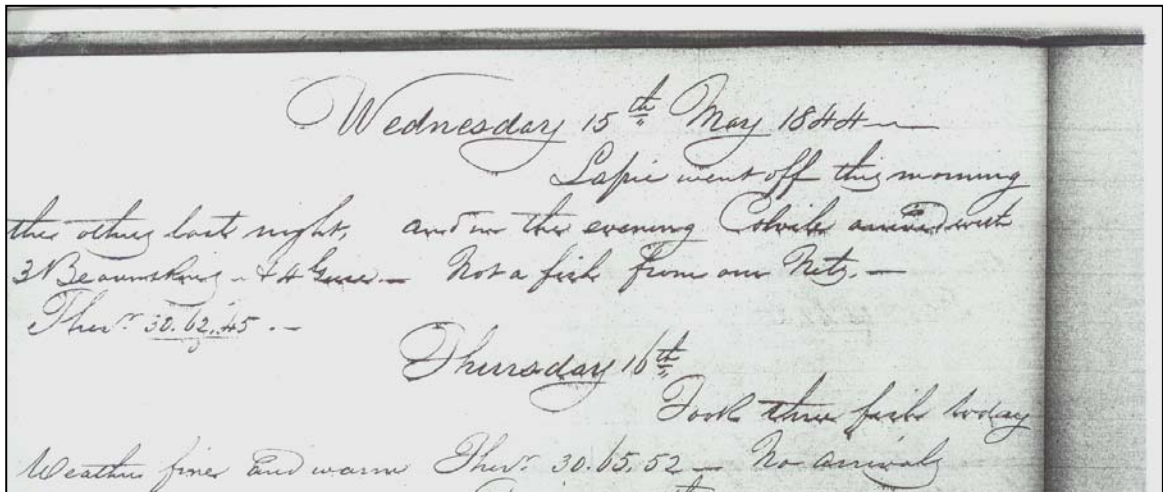 Wednesday 15th May 1844 —
Lapie went off this morning
the others last night, and in the evening Colvile arrived with
3 Beaverskins - & 4 Geese. — Not a fish from our Nets. —
Ther. 30.62.45. —
Thursday 16th
Took three fish today
Weather finer and warm Ther. 30.65.52 — No arrivals